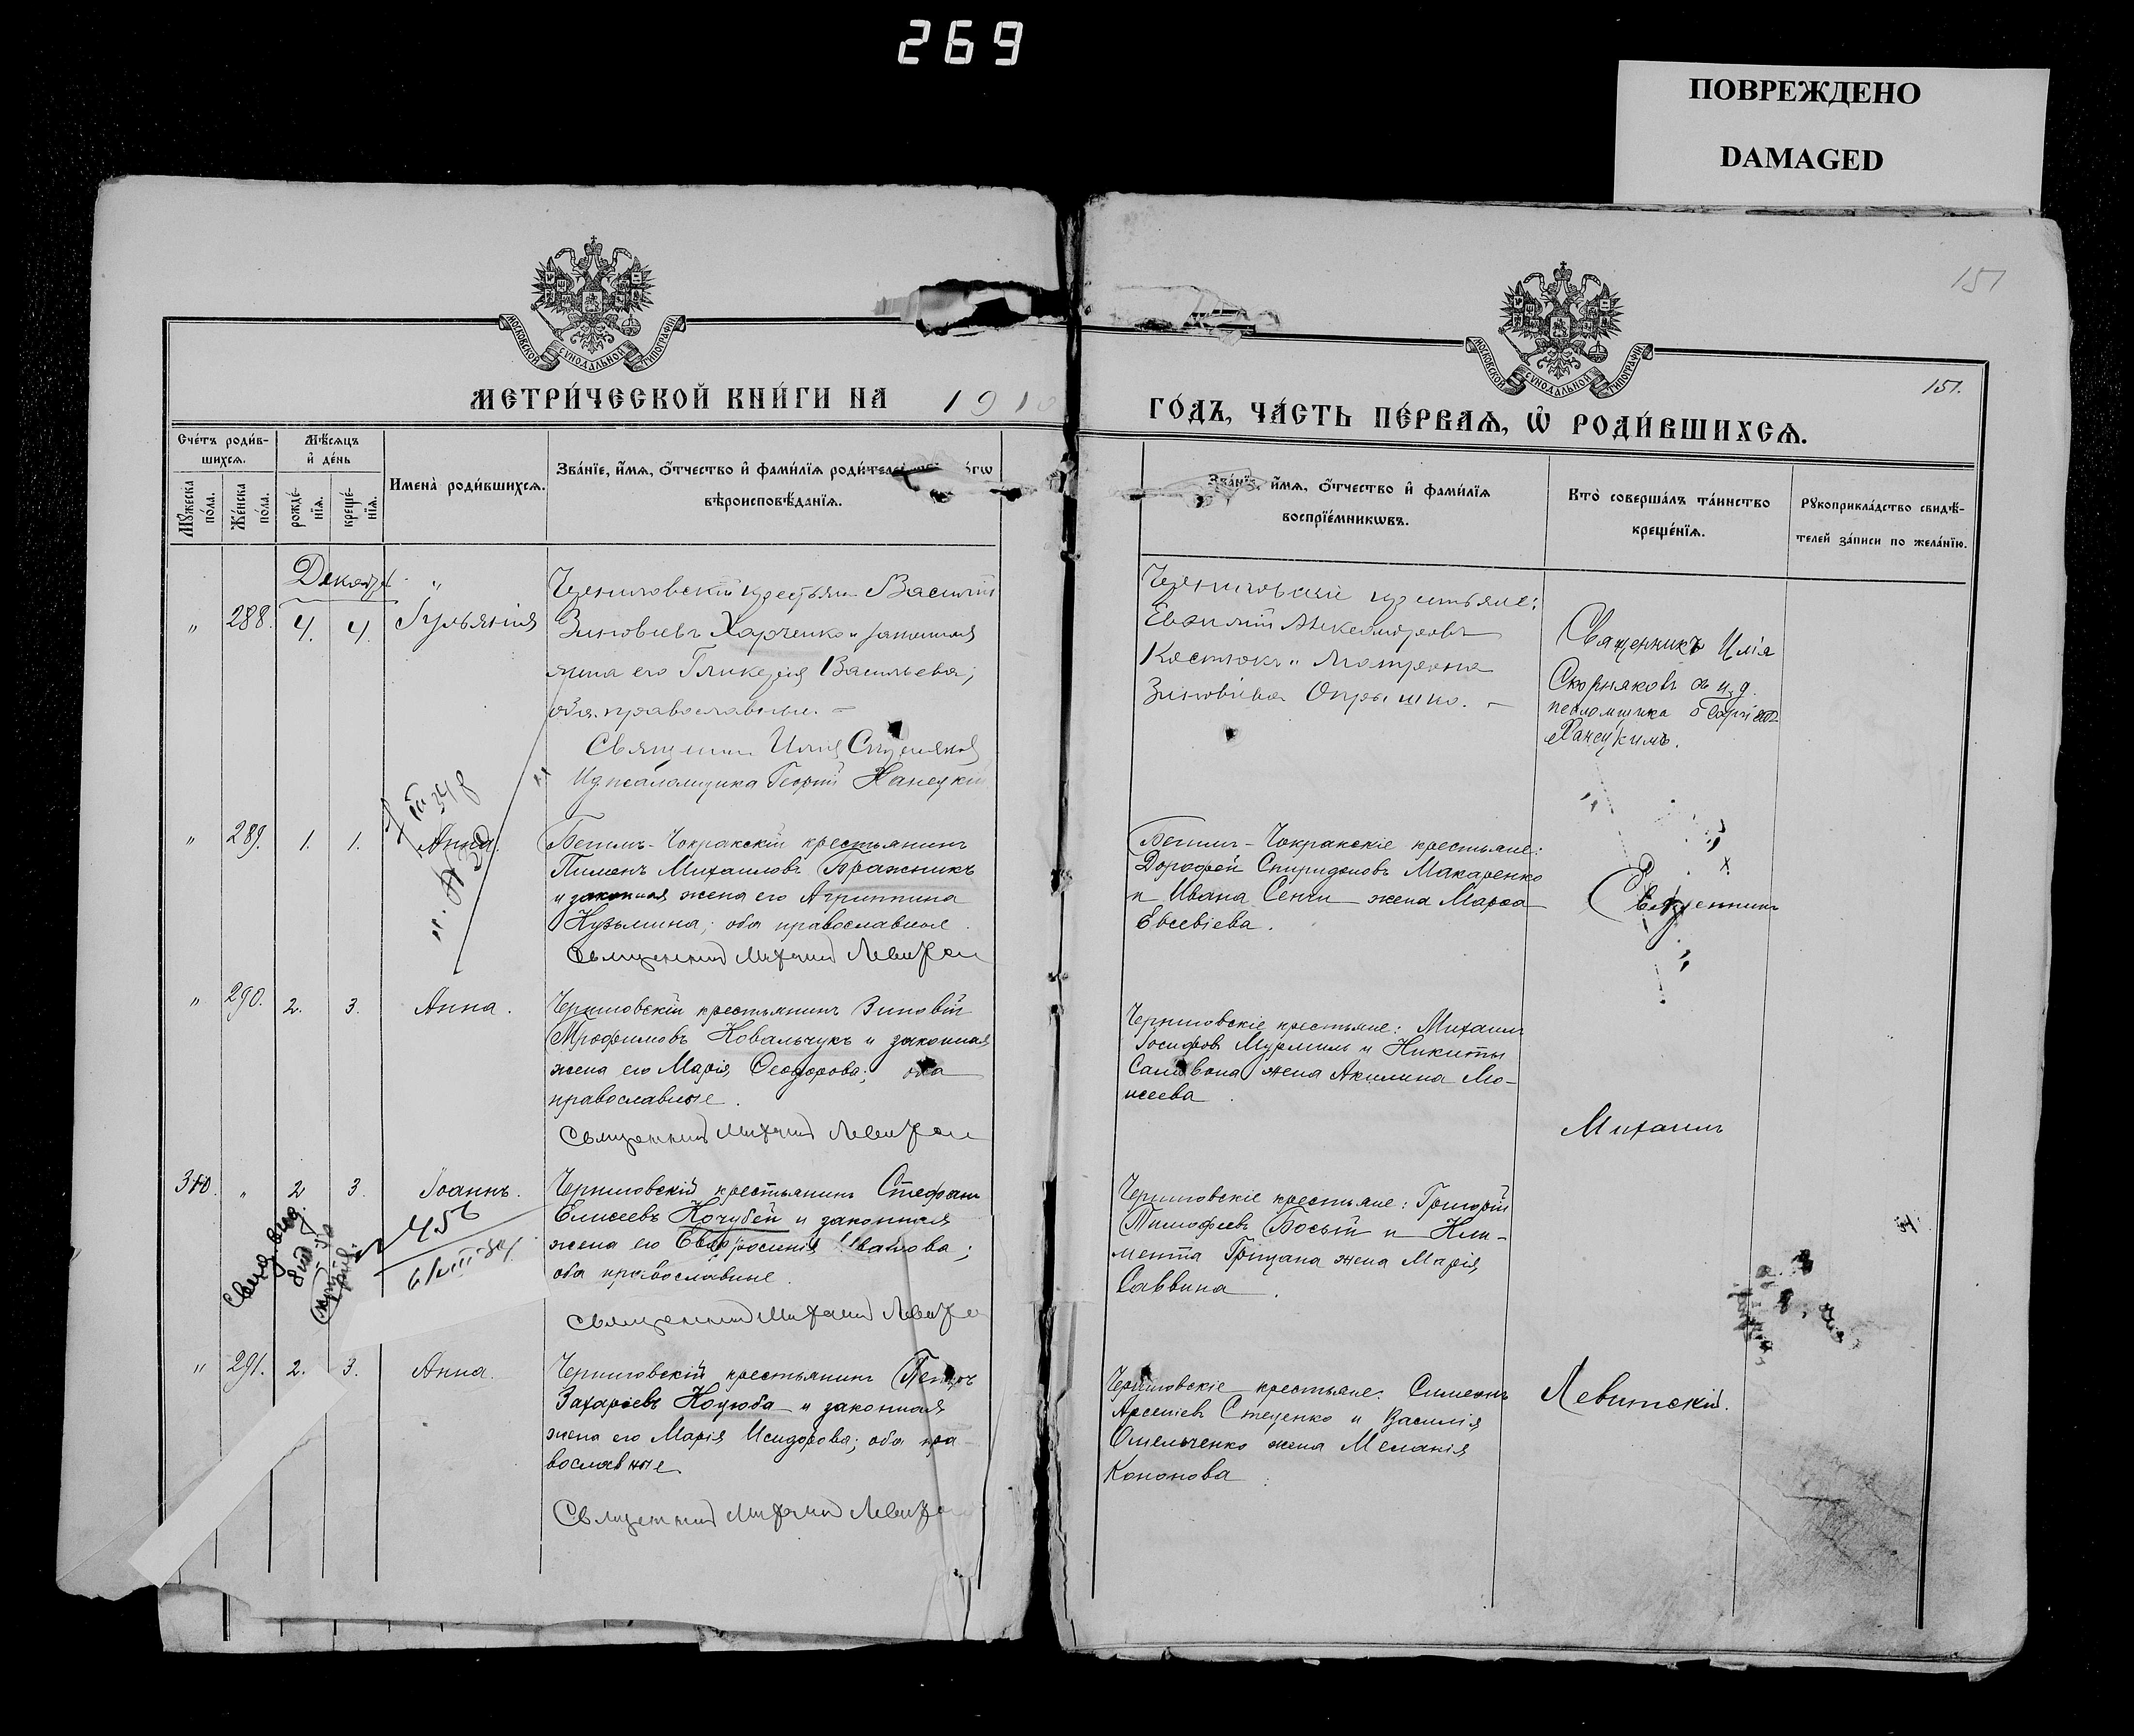 269
ПОВРЕЖДЕНО
DAMAGED
151
151.
МОСКОВСКОЙ СѴНОДАЛЬНОЙ ТИПОГРАФІИ
МОСКОВСКОЙ СѴНОДАЛЬНОЙ ТИПОГРАФІИ
МЕТРИ́ЧЕСКОЙ КНИ́ГИ НА 1910
ГО́ДЪ, ЧА́СТЬ ПЕ́РВАѦ, Ѽ РОДИ́ВШИХСѦ.
Сче́тъ роди́в-
шихсѧ.
Мꙋжеска по́ла.
Же́нска по́ла.
Мѣ́сѧцъ
и҆ де́нь
рожде́-
нїѧ.
креще́-
нїѧ.
Имена̀ роди́вшихсѧ.
Зва́нїе, и҆́мѧ, ѻ҆́тчество и҆ фами́лїѧ роди́телей
вѣроисповѣ́данїѧ.
Зва́нїе, и҆́мѧ, ѻ҆́тчество и҆ фами́лїѧ
воспрїе́мникѡвъ.
Кто̀ соверша́лъ та́инство
креще́нїѧ.
Рꙋкоприкла́дство свидѣ́-
телей за́писи по жела́нїю.
Декабрь "
" 288. 4. 4. Іульянія
Черниговскій крестьян Василій
Зиновіевъ Харченко и законная
жена его Гликерія Васильева;
оба православные.
Священник Илія Скорняков
И д псаломщика Георгій Ханецкій
Черниговскіе крестьяне:
Евфимій Александровъ
Костюкъ и Матрона
Зиновіева Опрышко.
Священникъ Илія
Скорняковъ съ и д.
псаломщика Георгіемъ
Ханецкимъ.
" 289. 1. 1. Анна.
Бегимъ-Чокракскій крестьянинъ
Пименъ Михаиловъ Бражникъ
и законная жена его Агриппина
Кузьмина; оба православные.
Священник Михаил Левитский
Бегимъ-Чокракскіе крестьяне:
Дорофей Спиридоновъ Макаренко
и Ивана Сенчи жена Марѳа
Евсевіева.
Священникъ
" 290. 2. 3. Анна.
Черниговскій крестьянинъ Зиновій
Трофимовъ Ковальчукъ и законная
жена его Марія Ѳеодорова; оба
православные.
Священник Михаил Левитский
Черниговскіе крестьяне: Михаилъ
Іосифовъ Мурмиль и Никиты
жена Акилина Мо-
исеева.
Михаилъ
310. " 2 3. Іоаннъ.
456
6/VIII-34
Черниговскій крестьянинъ Стефанъ
Елисеевъ Кочубей и законная
жена его Евфросинія Иванова;
оба православные.
Священник Михаил Левитский
Черниговскіе крестьяне: Григорій
Тимофеевъ Босый и Кли-
мента Грищана жена Марія
Саввина.
" 291. 2. 3. Анна.
Черниговскій крестьянинъ Петръ
Захаріевъ Коцюба и законная
жена его Марія Исидорова; оба пра-
вославные.
Священник Михаил Левитский
Черниговскіе крестьяне: Симеонъ
Арсеніевъ Стеценко и Василія
Омельченко жена Меланія
Кононова.
Левитскій.